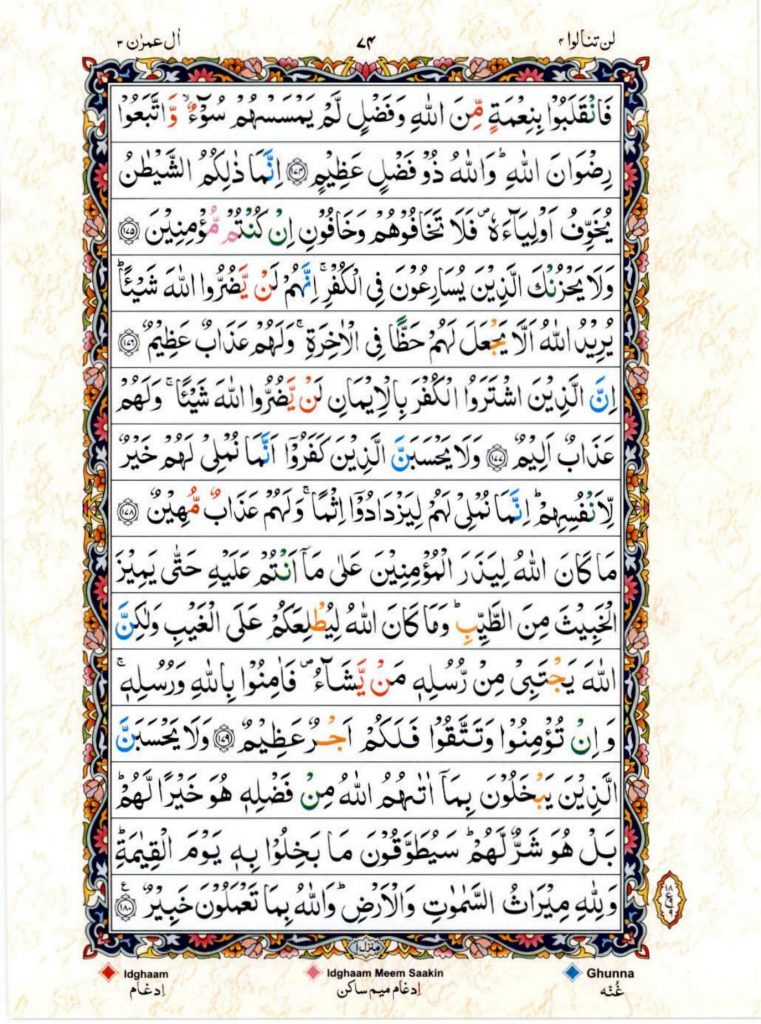 لن تنالوا ۴ ۷۴ اٰل عمرٰن ۳
فَانْقَلَبُوْا بِنِعْمَةٍ مِّنَ اللّٰهِ وَفَضْلٍ لَّمْ يَمْسَسْهُمْ سُوْٓءٌ ۙ وَّاتَّبَعُوْا
رِضْوَانَ اللّٰهِ ؕ وَاللّٰهُ ذُوْ فَضْلٍ عَظِيْمٍ ﴿۱۷۴﴾ اِنَّمَا ذٰلِكُمُ الشَّيْطٰنُ
يُخَوِّفُ اَوْلِيَآءَهٗ ۪ فَلَا تَخَافُوْهُمْ وَخَافُوْنِ اِنْ كُنْتُمْ مُّؤْمِنِيْنَ ﴿۱۷۵﴾
وَلَا يَحْزُنْكَ الَّذِيْنَ يُسَارِعُوْنَ فِى الْكُفْرِ ۚ اِنَّهُمْ لَنْ يَّضُرُّوا اللّٰهَ شَيْئًا ؕ
يُرِيْدُ اللّٰهُ اَلَّا يَجْعَلَ لَهُمْ حَظًّا فِى الْاٰخِرَةِ ۚ وَلَهُمْ عَذَابٌ عَظِيْمٌ ﴿۱۷۶﴾
اِنَّ الَّذِيْنَ اشْتَرَوُا الْكُفْرَ بِالْاِيْمَانِ لَنْ يَّضُرُّوا اللّٰهَ شَيْئًا ۚ وَلَهُمْ
عَذَابٌ اَلِيْمٌ ﴿۱۷۷﴾ وَلَا يَحْسَبَنَّ الَّذِيْنَ كَفَرُوْٓا اَنَّمَا نُمْلِىْ لَهُمْ خَيْرٌ
لِّاَنْفُسِهِمْ ؕ اِنَّمَا نُمْلِىْ لَهُمْ لِيَزْدَادُوْٓا اِثْمًا ۚ وَلَهُمْ عَذَابٌ مُّهِيْنٌ ﴿۱۷۸﴾
مَا كَانَ اللّٰهُ لِيَذَرَ الْمُؤْمِنِيْنَ عَلٰى مَآ اَنْتُمْ عَلَيْهِ حَتّٰى يَمِيْزَ
الْخَبِيْثَ مِنَ الطَّيِّبِ ؕ وَمَا كَانَ اللّٰهُ لِيُطْلِعَكُمْ عَلَى الْغَيْبِ وَلٰكِنَّ
اللّٰهَ يَجْتَبِىْ مِنْ رُّسُلِهٖ مَنْ يَّشَآءُ ۪ فَاٰمِنُوْا بِاللّٰهِ وَرُسُلِهٖ ۚ
وَاِنْ تُؤْمِنُوْا وَتَتَّقُوْا فَلَكُمْ اَجْرٌ عَظِيْمٌ ﴿۱۷۹﴾ وَلَا يَحْسَبَنَّ
الَّذِيْنَ يَبْخَلُوْنَ بِمَآ اٰتٰىهُمُ اللّٰهُ مِنْ فَضْلِهٖ هُوَ خَيْرًا لَّهُمْ ؕ
بَلْ هُوَ شَرٌّ لَّهُمْ ؕ سَيُطَوَّقُوْنَ مَا بَخِلُوْا بِهٖ يَوْمَ الْقِيٰمَةِ ؕ
وَلِلّٰهِ مِيْرَاثُ السَّمٰوٰتِ وَالْاَرْضِ ؕ وَاللّٰهُ بِمَا تَعْمَلُوْنَ خَبِيْرٌ ﴿۱۸۰﴾ ع
منزل ۱
Idghaam Idghaam Meem Saakin Ghunna
اِدغام اِدغام میم ساکن غُنّه